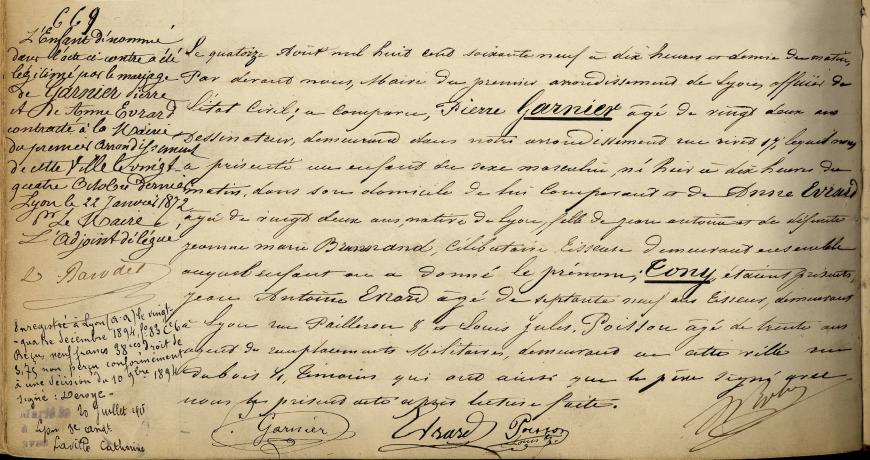 669
L'Enfant dénommé
dans l'acte ci contre a été
légitimé par le mariage
de Garnier Pierre
et de Anne Evrard
contracté à la Mairie
du premier arrondissement
de cette Ville le vingt
quatre Octobre dernier
Lyon le 22 Janvier 1872
Pr Le Maire
L'Adjoint délégué
Enregistré à Lyon (a.a) le vingt-
quatre decembre 1894, f° 83 C° 6
Reçu neuf francs 38 ces droit de
3.75 non perçu conformément
à une décision du 10 9bre 1894
signé: Deroye-
20 juillet
Lyon 5e
Laville Catherine
Le quatorze Août mil huit cent soixante neuf à dix heures et demie du matin,
Par devant nous, Maire du premier arrondissement de Lyon, officier de
l'état Civil, a comparu, Pierre Garnier âgé de vingt deux ans
Dessinateur, demeurant dans notre arrondissement rue 17, lequel nous
a présenté un enfant du sexe masculin, né hier à dix heures du
matin, dans son domicile de lui Comparant et de Anne Evrard
âgée de vingt deux ans, native de Lyon, fille de jean antoine et de défunte
jeanne marie, célibataire Tisseuse demeurant ensemble
auquel enfant on a donné le prénom; Tony, étaient présents,
jean Antoine Evrard âgé de septante neuf ans Tisseur, demeurant
à Lyon rue Pailleron 8 et Louis Jules, Poisson âgé de trente ans
agent de remplacements Militaires, demeurant en cette ville rue
dubois 4, temoins qui ont ainsi que le père signé avec
nous le présent acte après lecture faite.
Garnier Evrard Poisson